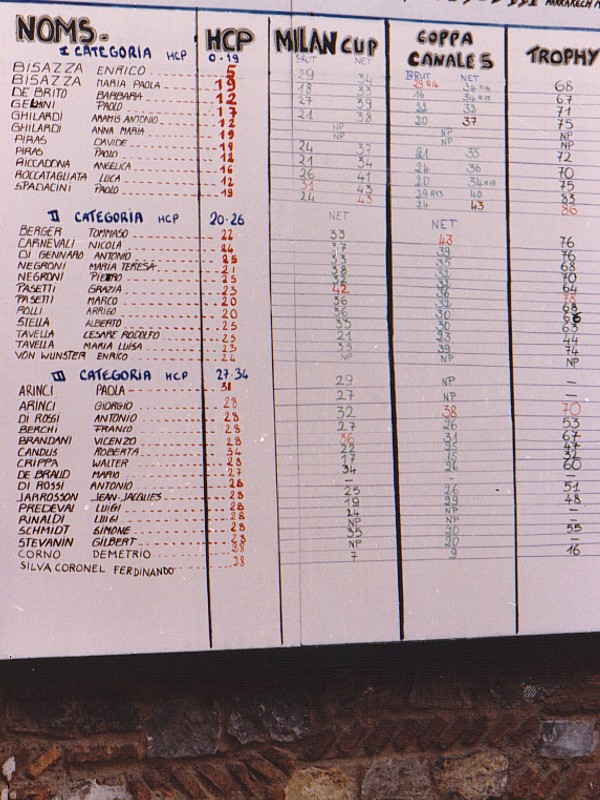 MARRAKECH
NOMS. HCP MILAN CUP COPPA CANALE 5 TROPHY
I CATEGORIA HCP 0-19 BRUT NET BRUT NET
BISAZZA ENRICO 5 29 34 68
BISAZZA MARIA PAOLA 19 18 33 16 67
DE BRITO BARBARA 12 27 39 22 33 71
GELMINI PAOLO 17 21 38 20 37 75
GHILARDI ARAMIS ANTONIO 12 NP NP NP
GHILARDI ANNA MARIA 19 NP NP
PIRAS DAVIDE 19 24 37 21 35 72
PIRAS PAOLO 12 21 34 24 36 70
RICCADONA ANGELICA 16 26 41 20 75
ROCCATAGLIATA LUCA 12 31 43 40 83
SPADACINI PAOLO 19 24 43 24 43 86
II CATEGORIA HCP 20-26 NET NET
BERGER TOMMASO 22 33 43 76
CARNEVALI NICOLA 24 37 39 76
DI GENNARO ANTONIO 25 33 35 68
NEGRONI MARIA TERESA 21 38 70
NEGRONI PIETRO 25 64
PASETTI GRAZIA 23 42 36 78
PASETTI MARCO 20 36 68
POLLI ARRIGO 20 36 30 66
STELLA ALBERTO 25 33 30 63
TAVELLA CESARE RODOLFO 25 21 23 44
TAVELLA MARIA LUISA 23 35 39 74
VON WUNSTER ENRICO 24 NP NP NP
III CATEGORIA HCP 27-34
ARINCI PAOLA 31 29 NP –
ARINCI GIORGIO 28 27 NP –
DI ROSSI ANTONIO 28 32 38 70
BERCHI FRANCO 28 27 26 53
BRANDANI VICENZO 28 36 31 67
CANDUS ROBERTA 34 22 25 47
CRIPPA WALTER 28 17 15 32
DE BRAUD MARIO 27 34 26 60
DI ROSSI ANTONIO 28 – – –
JARROSSON JEAN-JACQUES 28 25 26 51
PREDEVAL LUIGI 28 19 29 48
RINALDI LUIGI 28 24 NP –
SCHMIDT SIMONE 28 NP NP –
STEVANIN GILBERT 23 35 20 55
CORNO DEMETRIO 28 NP 20 –
SILVA CORONEL FERDINANDO 28 7 9 16